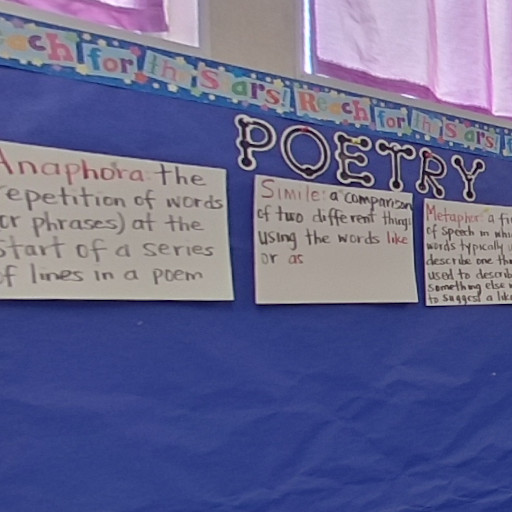 each for the stars! Reach for the stars! f
POETRY
Anaphora: the
repetition of words
or phrases) at the
start of a series
of lines in a poem
Simile: a comparison
of two different things
using the words like
or as
Metapher a fi
of speech in whi
words typically u
describe one thi
used to describ
something else
to suggest a like